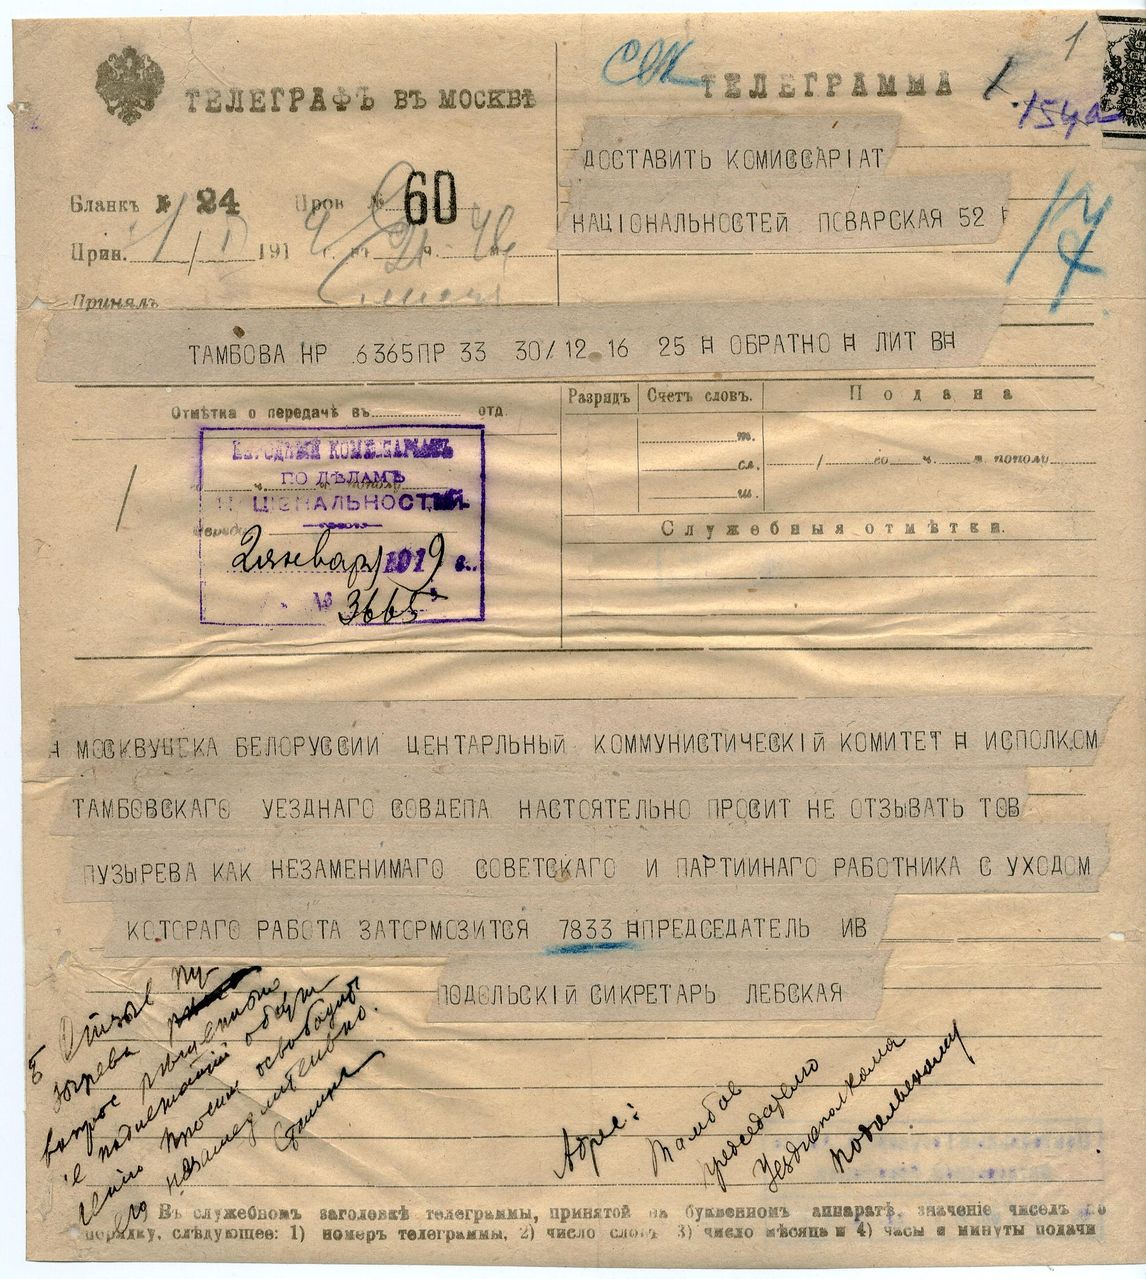 СѢК
1
154а
ТЕЛЕГРАФЪ ВЪ МОСКВѢ
ТЕЛЕГРАММА
ДОСТАВИТЬ КОМИССАРІАТ
НАЦІОНАЛЬНОСТЕЙ ПОВАРСКАЯ 52
Бланкъ № 24 Пров № 60
Прин. 1/I 1919 г. въ 21 ч. м.
17
Принялъ
ТАМБОВА НР 6365ПР 33 30/12 16 25 Н ОБРАТНО Н ЛИТ ВН
Отмѣтка о передачѣ въ отд.
Разрядъ Счетъ словъ. Подана
т.
сл. / го ч. м. пополу
ш.
Служебныя отмѣтки.
НАРОДНЫЙ КОМИССАРІАТЪ
ПО ДѢЛАМЪ
НАЦІОНАЛЬНОСТЕЙ.
2 январ 1919 г.
№ 3665
Н МОСКВУЦЕКА БЕЛОРУССИИ ЦЕНТАРЛЬНЫЙ КОММУНИСТИЧЕСКІЙ КОМИТЕТ Н ИСПОЛКОМ
ТАМБОВСКАГО УЕЗДНАГО СОВДЕПА НАСТОЯТЕЛЬНО ПРОСИТ НЕ ОТЗЫВАТЬ ТОВ
ПУЗЫРЕВА КАК НЕЗАМЕНИМАГО СОВЕТСКАГО И ПАРТИИНАГО РАБОТНИКА С УХОДОМ
КОТОРАГО РАБОТА ЗАТОРМОЗИТСЯ 7833 НПРЕДСЕДАТЕЛЬ ИВ
ПОДОЛЬСКІЙ СИКРЕТАРЬ ЛЕБСКАЯ
Отзыв пу-
зырева
вопрос решенный
не подлежащий обсуж-
дению просим освободить
его незамедлительно.
Адрес: Тамбов
председателю
Уездисполкома
Подольскому
Въ служебномъ заголовкѣ телеграммы, принятой на буквенномъ аппаратѣ, значеніе чиселъ по
порядку, слѣдующее: 1) номеръ телеграммы, 2) число словъ 3) число мѣсяца и 4) часы и минуты подачи